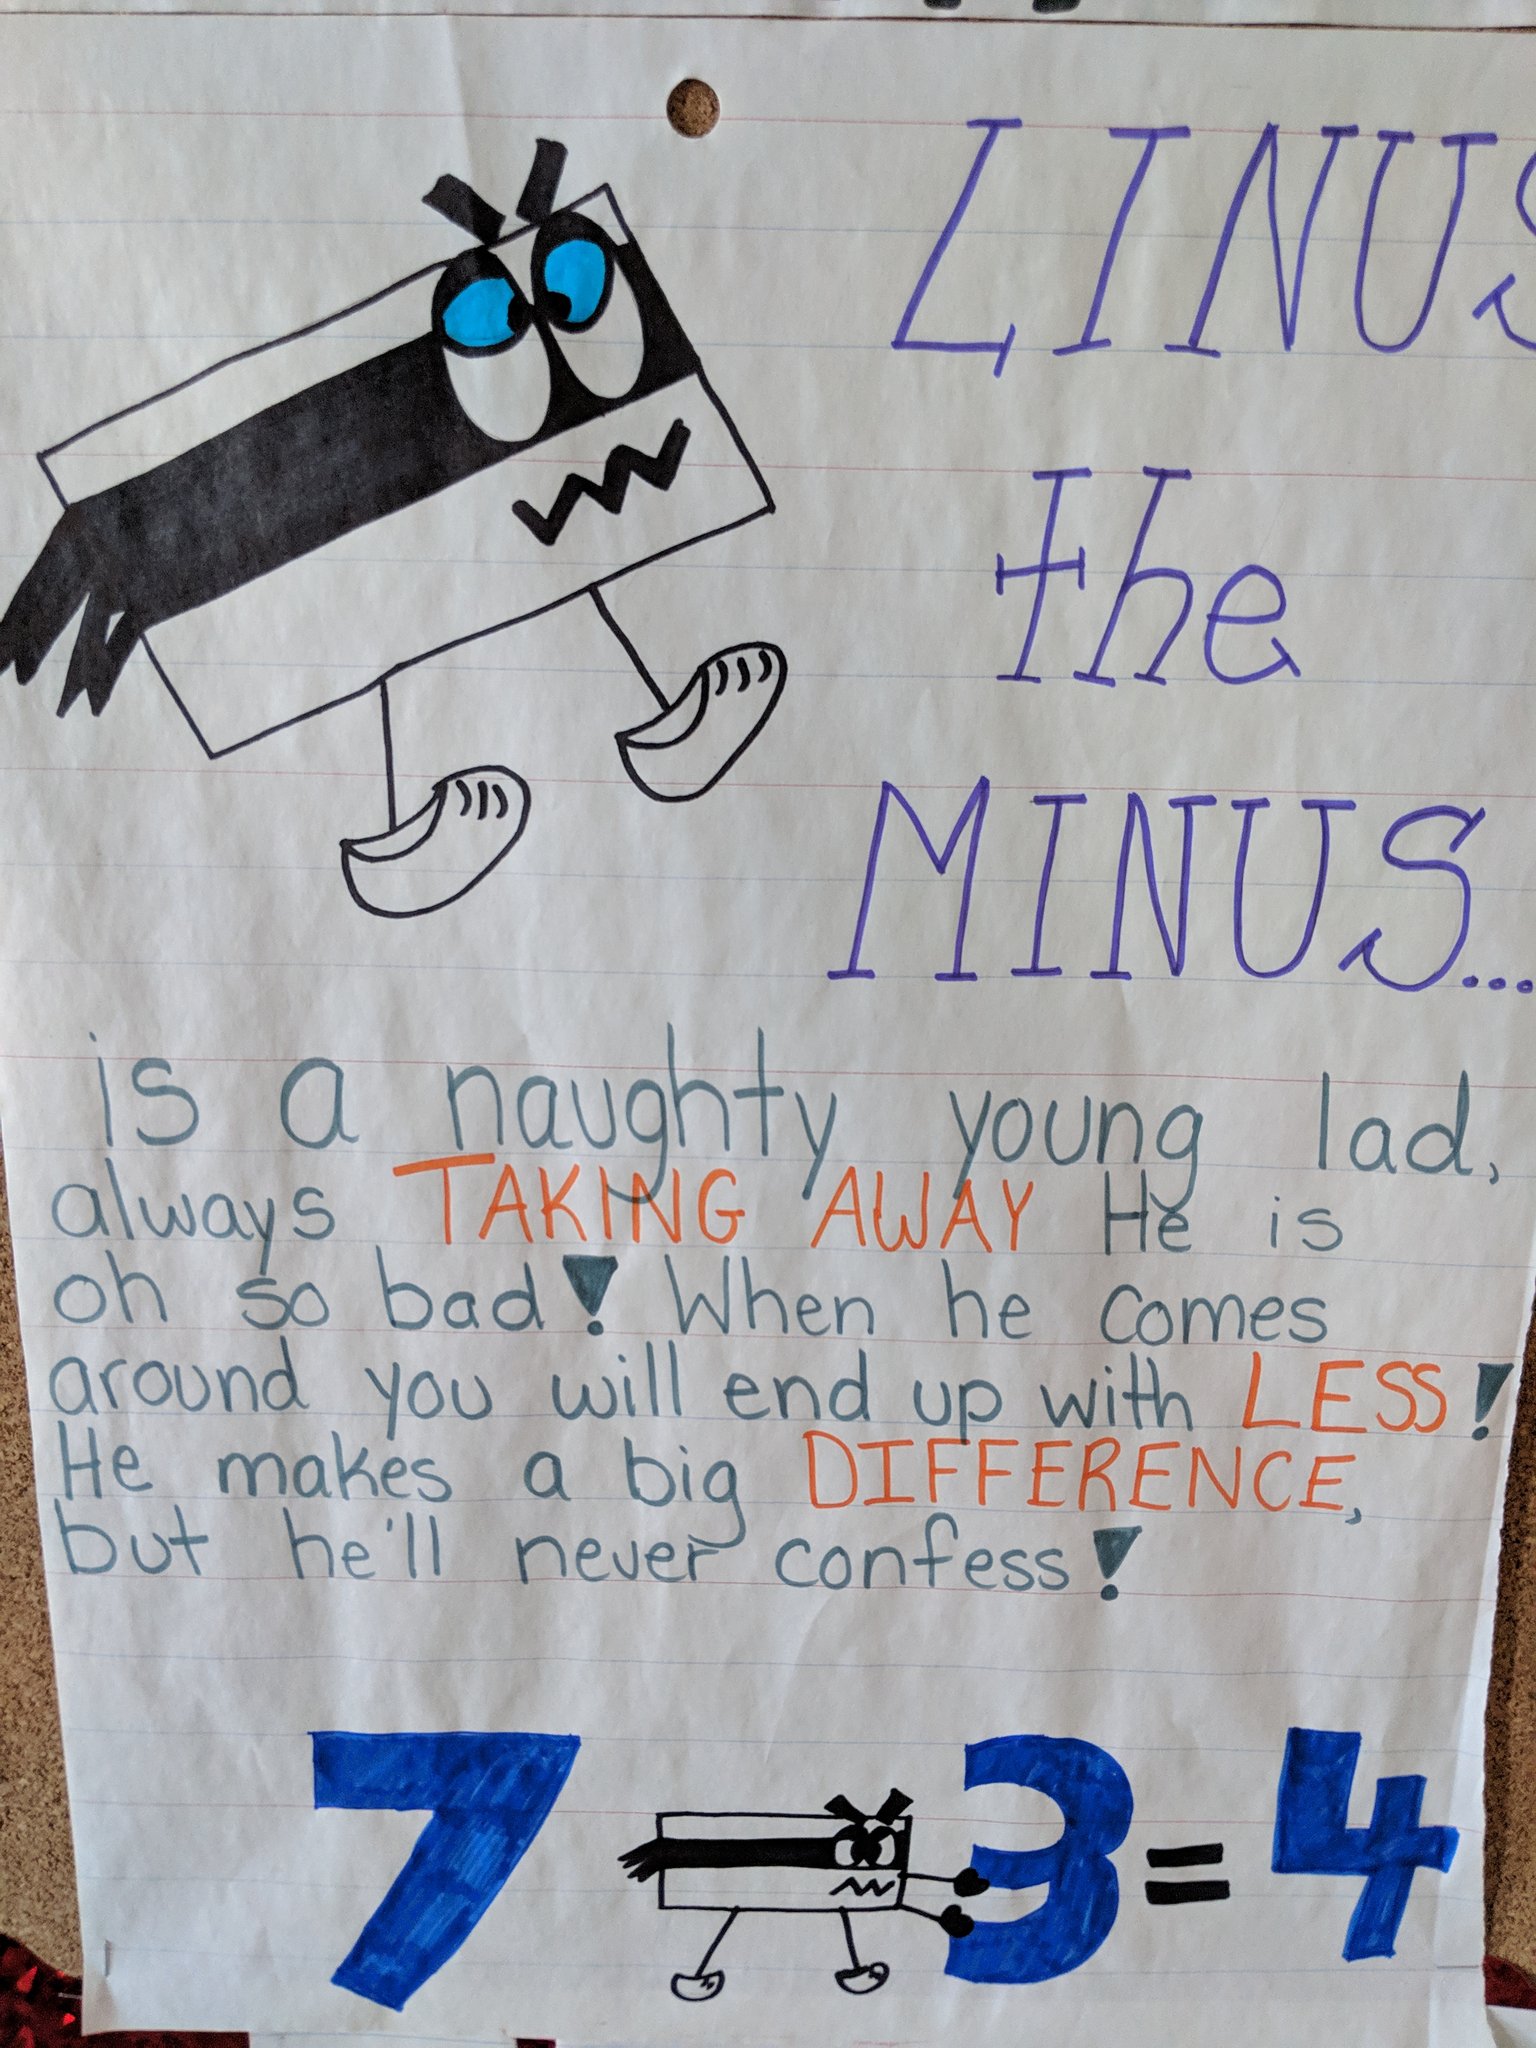 LINUS
the
MINUS...
is a naughty young lad,
always TAKING AWAY He is
oh so bad! When he comes
around you will end up with LESS!
He makes a big DIFFERENCE,
but he'll never confess!
7 - 3 = 4